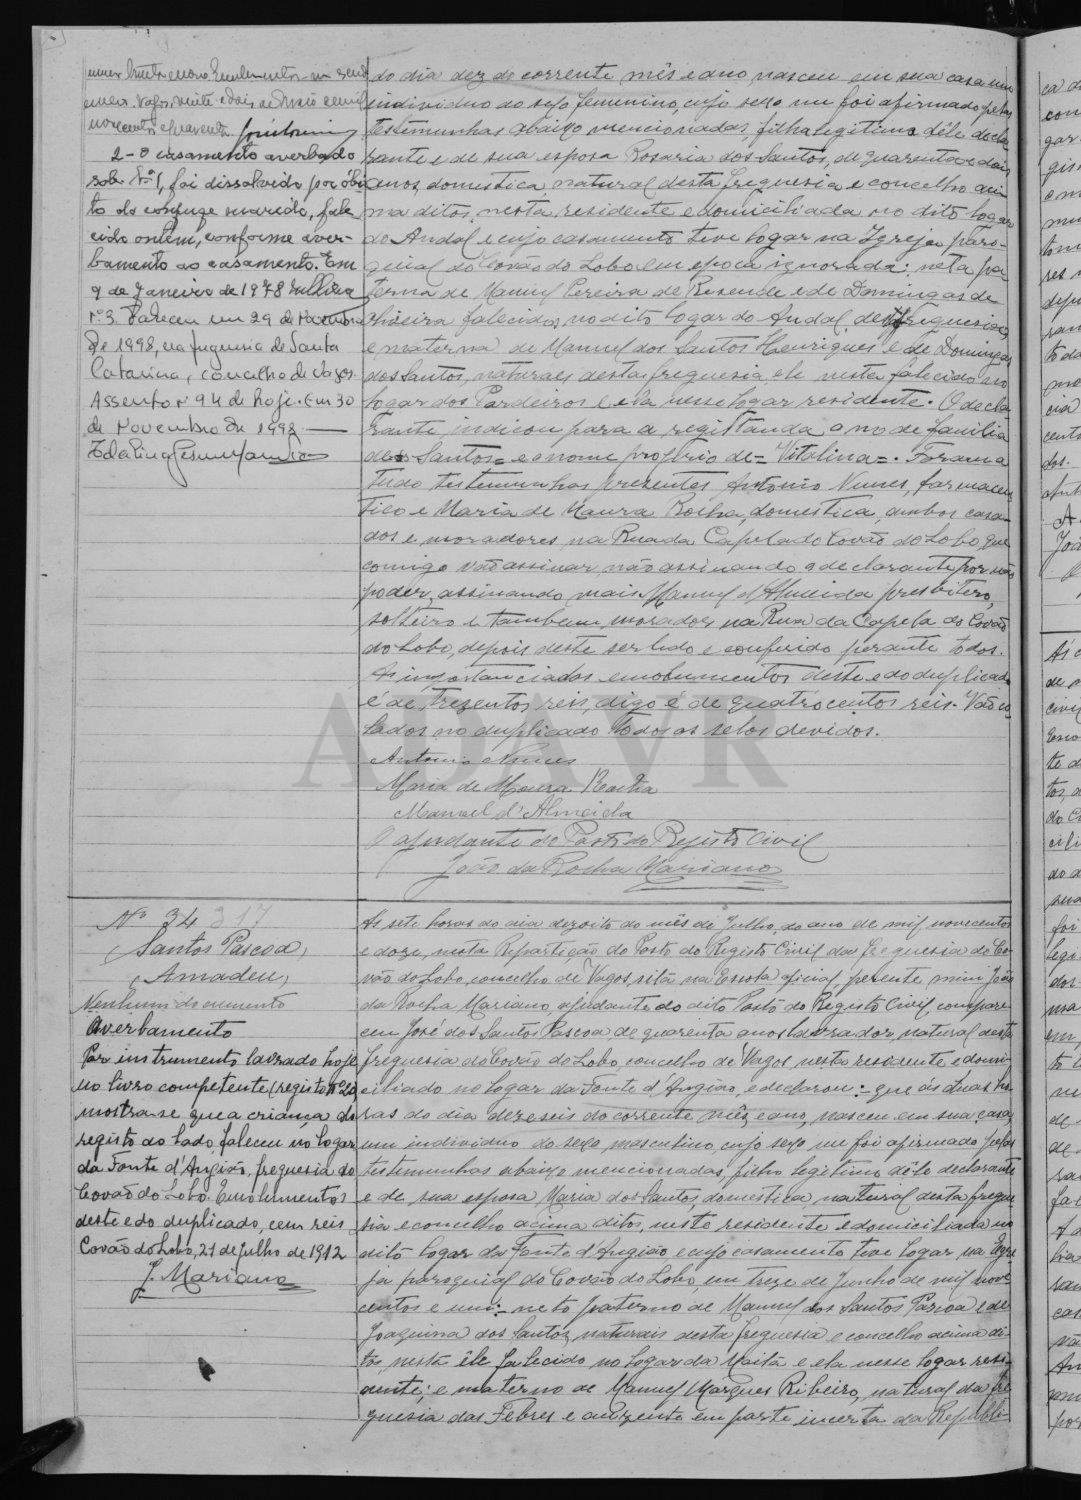 do dia dez do corrente mês e ano, nasceu em sua casa um
individuo do sexo femenino, cujo sexo me foi afirmado pelas
testemunhas abaixo mencionadas, filha legitima dêle decla
rante e de sua esposa Rosaria dos Santos, de quarenta e dois
anos, domestica, natural desta freguesia e concelho aci
ma ditos, nesta residente e domiciliada no dito logar
do Andal e cujo casamento teve logar na Igreja paro-
quial do Covão do Lobo em epoca ignorada: neta pa
terna de Manuel Pereira de Resende e de Domingas de
Oliveira falecidos no dito logar do Andal, desta freguesia,
e materna de Manuel dos Santos Henriques e de Domingas
dos Santos, naturaes desta freguesia, ele nesta falecido no
logar dos Pardeiros e ela nesse logar residente. O decla
rante indicou para a registanda o nome de familia
de = Santos = e o nome proprio de = Vitalina =. Foram a
tudo testemunhas presentes Antonio Nunes, farmaceu
tico e Maria de Moura Rocha, domestica, ambos casa-
dos e moradores na Rua da Capela do Covão do Lobo, que
comigo vão assinar, não assinando o declarante por não
poder, assinando mais Manuel d'Almeida presbitero,
solteiro e tambem morador na Rua da Capela do Covão
do Lobo, depois deste ser lido e conferido perante todos.
As importancias dos emolumentos deste e do duplicado
é de trezentos reis, digo é de quatrocentos reis. Vão co
lados no duplicado todos os selos devidos.
Antonio Nunes
Maria de Moura Rocha
Manuel d'Almeida
O ajudante do Posto do Registo Civil
João da Rocha Mariano
2-O casamento averbado
sob Nº 1, foi dissolvido por óbi
to do conjuge marido, fale
cido ontem, conforme aver-
bamento ao casamento. Em
9 de Janeiro de 1978
Nº 3. Faleceu em 29 de Novembro
de 1998, na freguesia de Santa
Catarina, concelho de Vagos.
Assento nº 94 de hoje. Em 30
de Novembro de 1998.
ADAVR
Nº 34 317
Santos Pascoa,
Amadeu,
Nenhum documento
Averbamento
Por instrumento lavrado hoje
no livro competente (registo nº 20)
mostra-se que a criança do
registo do lado, faleceu no logar
da Fonte d'Angião, freguesia do
Covão do Lobo. Emolumentos
deste e do duplicado, cem reis.
Covão do Lobo, 21 de julho de 1912
J. Mariano
Ás sete horas do dia dezoito do mês de Julho, do ano de mil novecentos
e doze, nesta Repartição do Posto do Registo Civil da freguesia do Co
vão do Lobo, concelho de Vagos, sita na Escola oficial, perente mim João
da Rocha Mariano, ajudante do dito Posto do Registo Civil, compare
ceu José dos Santos Pascoa de quarenta anos lavrador, natural desta
freguesia do Covão do Lobo, concelho de Vagos, nesta residente e domi-
ciliado no logar da Fonte d'Angião, e declarou: - que ás duas ho
ras do dia dezeseis do corrente mês e ano, nasceu em sua casa,
um individuo do sexo masculino, cujo sexo me foi afirmado pelas
testemunhas abaixo mencionadas, filho legitimo dêle declarante
e de sua esposa Maria dos Santos, domestica, natural desta fregue
sia e concelho acima ditos, nesta residente e domiciliada no
dito logar da Fonte d'Angião e cujo casamento teve logar na Igre
ja paroquial do Covão do Lobo, em treze de Junho de mil nove
centos e um: - neto paterno de Manuel dos Santos Pascoa e de
Joaquina dos Santos, naturais desta freguesia e concelho acima di
tos, nesta êle falecido no logar da Maita e ela nesse logar resi-
dente; e materno de Manuel Marques Ribeiro, natural da fre
guesia das Febres e auzente em parte incerta da Republi-